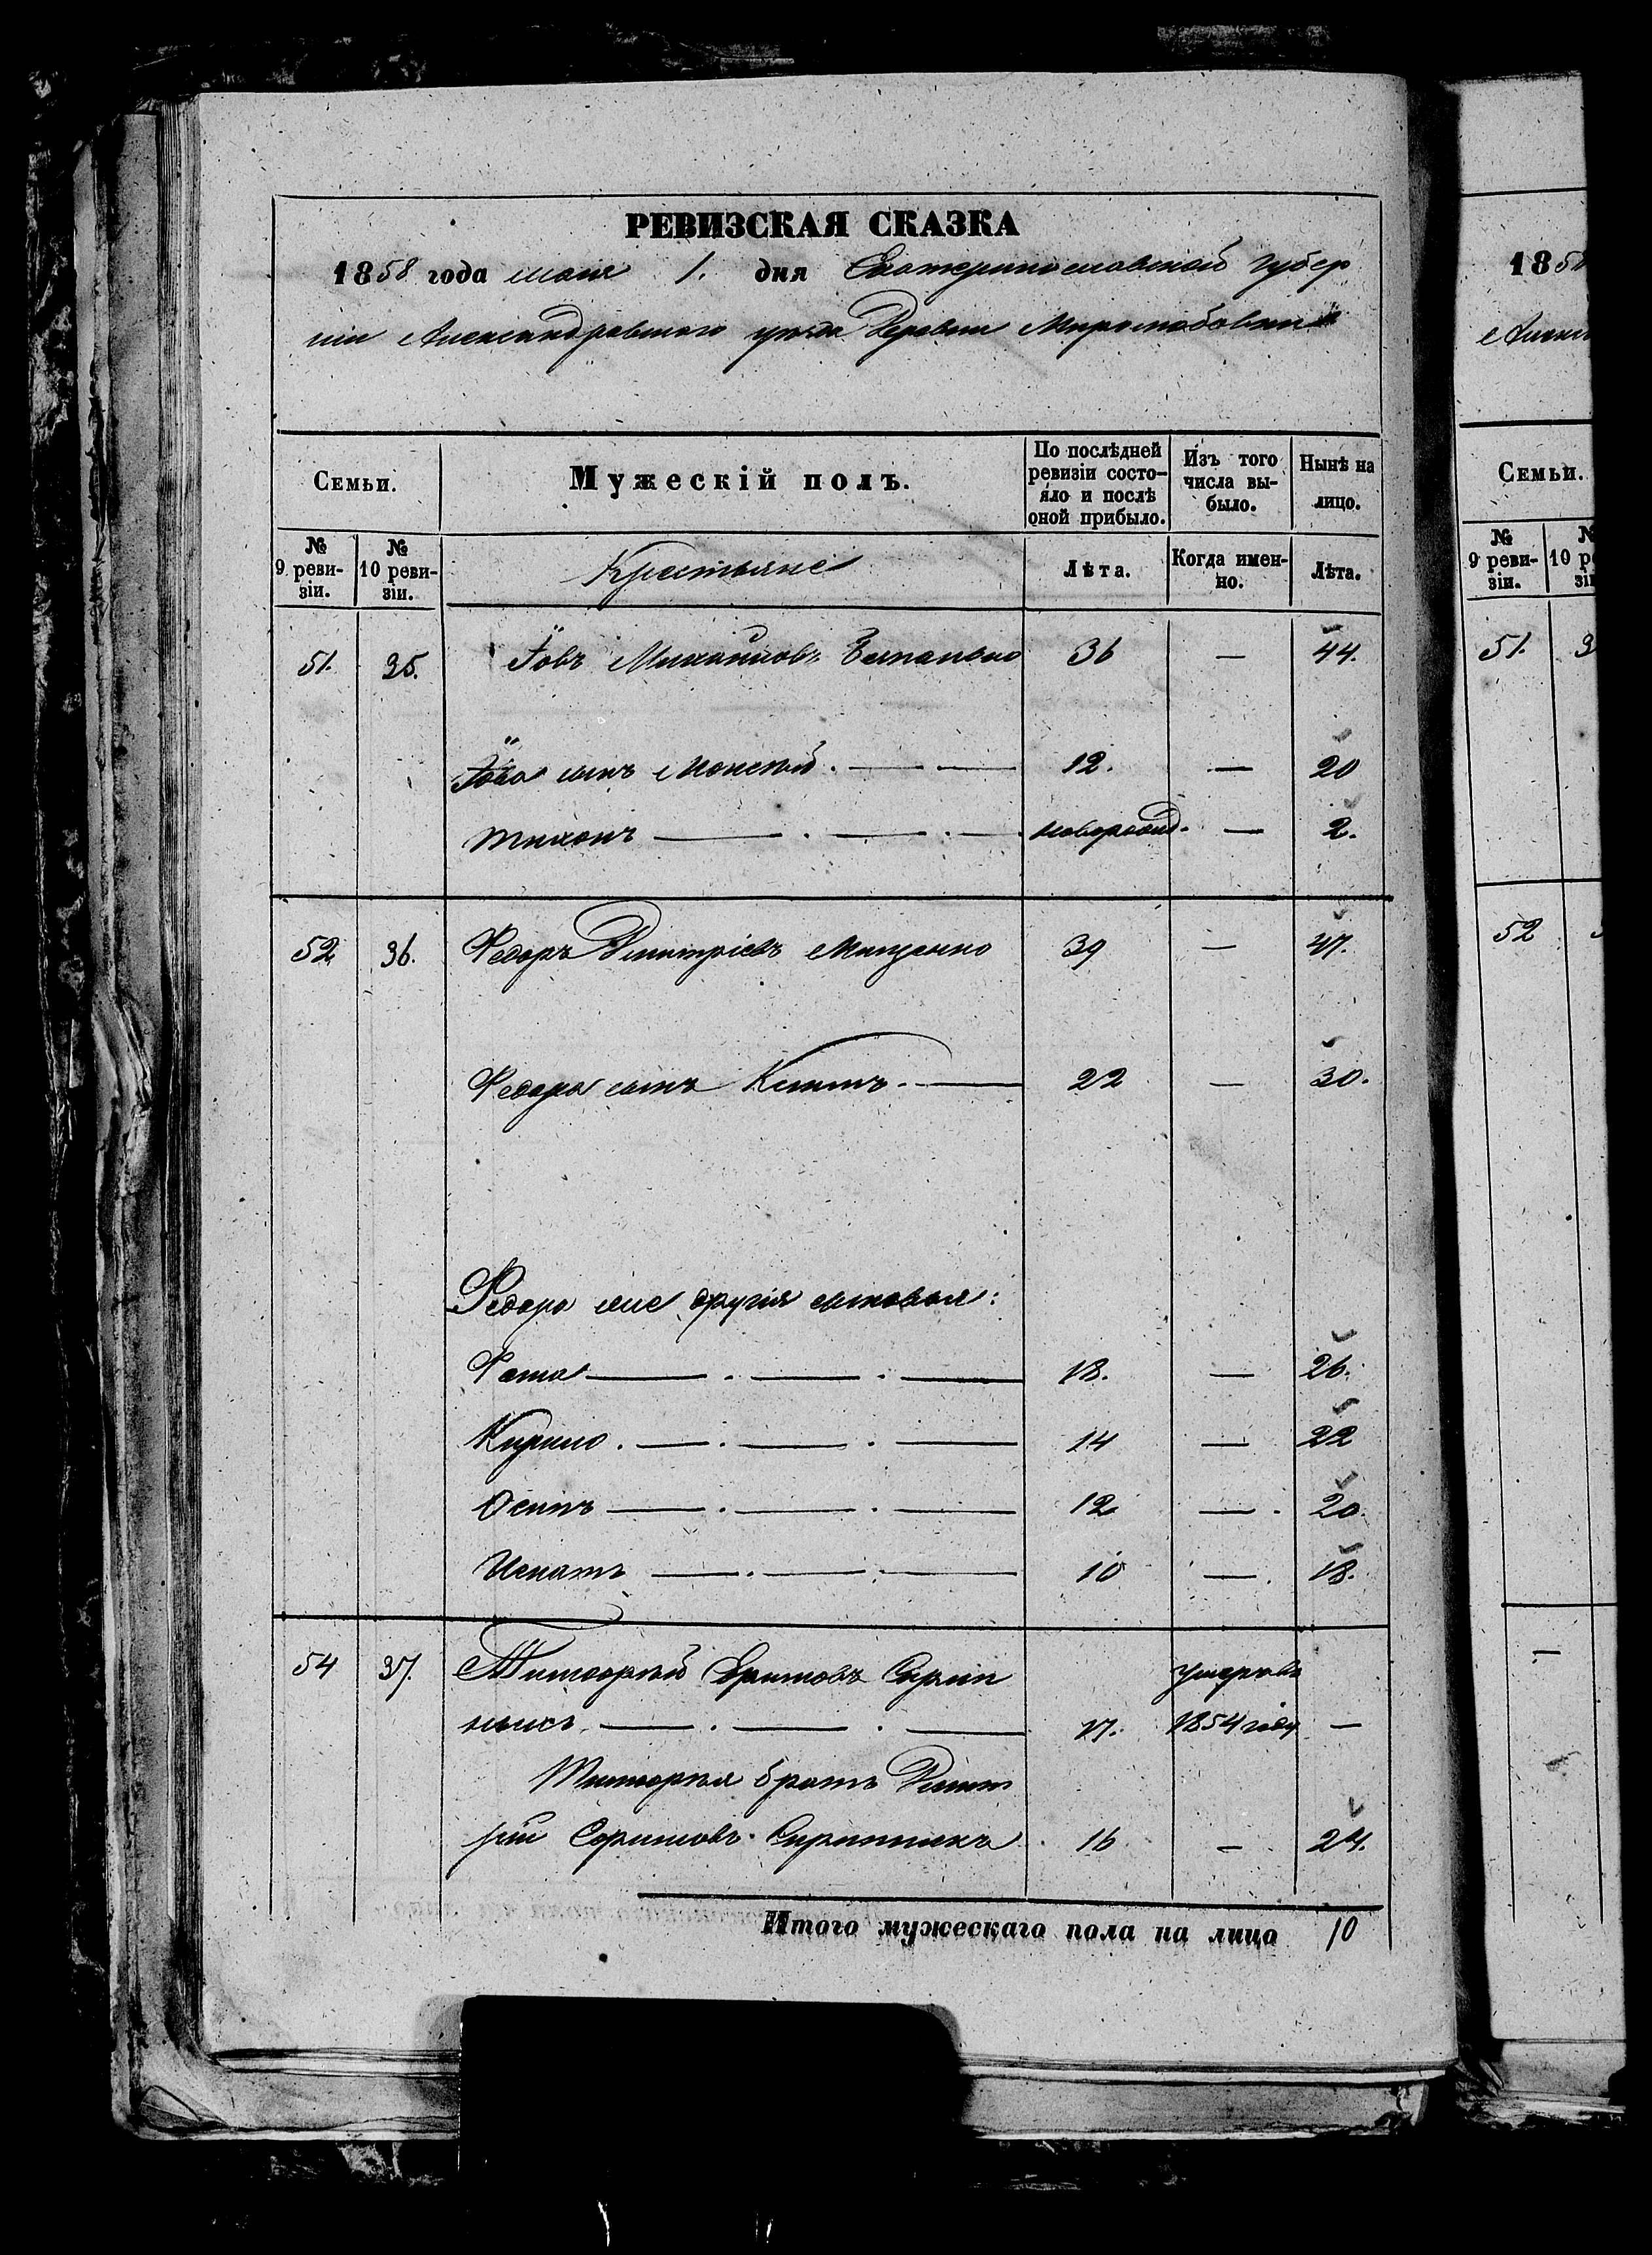 РЕВИЗСКАЯ СКАЗКА
1858 года мая 1. дня Екатеринославской губер
ніи Александровскаго уѣзда Деревни Миролюбовки
Семьи.
Мужескій полъ.
По послѣдней ревизіи состо-яло и послѣ оной прибыло.
Изъ того числа вы-было.
Нынѣ на лицо.
№ 9 реви-зіи.
№ 10 реви-зіи.
Крестьяне
Лѣта.
Когда имен-но.
Лѣта.
51. 35. Іовъ Михайловъ 36 — 44.
Іова сынъ Моисей. 12. — 20
Тихонъ новорожд. — 2.
52 36. Федоръ Дмитріевъ Мищенко 39 — 47.
Федора сынъ 22 — 30.
Федора же другія сыновья:
Фома 18. — 26.
Кирило. 14 — 22
Осипъ 12 — 20.
Игнатъ 10 — 18.
54 37. Тимофѣй умеръ въ
17. 1854 году —
Тимофея братъ Дмит
рій 16 — 24.
Итого мужескаго пола на лицо 10
1858
Семьи.
№ 9 реви-зіи.
51.
52
—